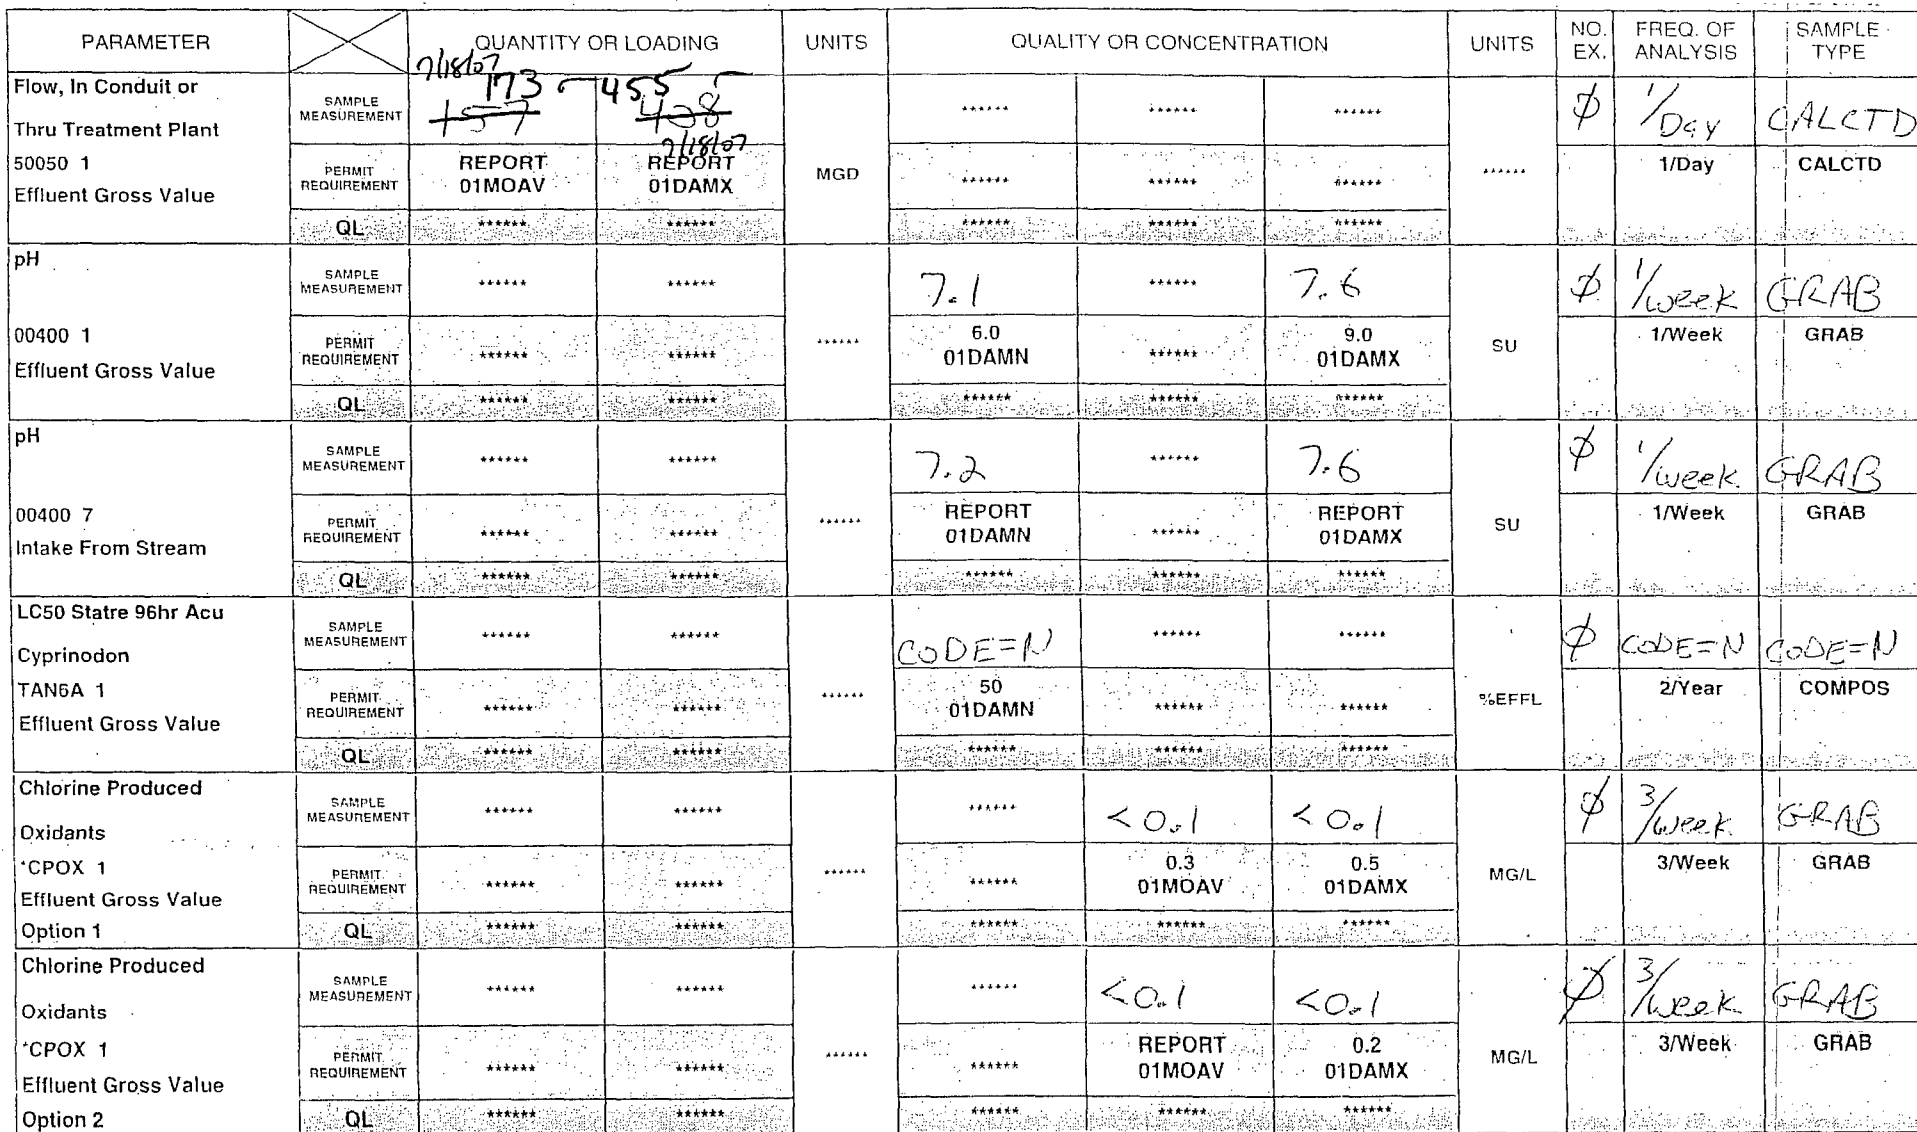 PARAMETER QUANTITY OR LOADING UNITS QUALITY OR CONCENTRATION UNITS NO. EX. FREQ. OF ANALYSIS SAMPLE TYPE
7/18/07
173 455
Flow, In Conduit or
Thru Treatment Plant
50050 1
Effluent Gross Value
SAMPLE MEASUREMENT 157 428 ****** ****** ****** Ø 1/Day CALCTD
7/18/07
PERMIT REQUIREMENT REPORT 01MOAV REPORT 01DAMX MGD ****** ****** ****** ****** 1/Day CALCTD
QL ****** ****** ****** ****** ******
pH
00400 1
Effluent Gross Value
SAMPLE MEASUREMENT ****** ****** 7.1 ****** 7.6 Ø 1/week GRAB
PERMIT REQUIREMENT ****** ****** ****** 6.0 01DAMN ****** 9.0 01DAMX SU 1/Week GRAB
QL ****** ****** ****** ****** ******
pH
00400 7
Intake From Stream
SAMPLE MEASUREMENT ****** ****** 7.2 ****** 7.6 Ø 1/week GRAB
PERMIT REQUIREMENT ****** ****** ****** REPORT 01DAMN ****** REPORT 01DAMX SU 1/Week GRAB
QL ****** ****** ****** ****** ******
LC50 Statre 96hr Acu
Cyprinodon
TAN6A 1
Effluent Gross Value
SAMPLE MEASUREMENT ****** ****** CODE=N ****** ****** Ø CODE=N CODE=N
PERMIT REQUIREMENT ****** ****** ****** 50 01DAMN ****** ****** %EFFL 2/Year COMPOS
QL ****** ****** ****** ****** ******
Chlorine Produced
Oxidants
*CPOX 1
Effluent Gross Value
Option 1
SAMPLE MEASUREMENT ****** ****** ****** <0.1 <0.1 Ø 3/week GRAB
PERMIT REQUIREMENT ****** ****** ****** ****** 0.3 01MOAV 0.5 01DAMX MG/L 3/Week GRAB
QL ****** ****** ****** ****** ******
Chlorine Produced
Oxidants
*CPOX 1
Effluent Gross Value
Option 2
SAMPLE MEASUREMENT ****** ****** ****** <0.1 <0.1 Ø 3/week GRAB
PERMIT REQUIREMENT ****** ****** ****** ****** REPORT 01MOAV 0.2 01DAMX MG/L 3/Week GRAB
QL ****** ****** ****** ****** ******